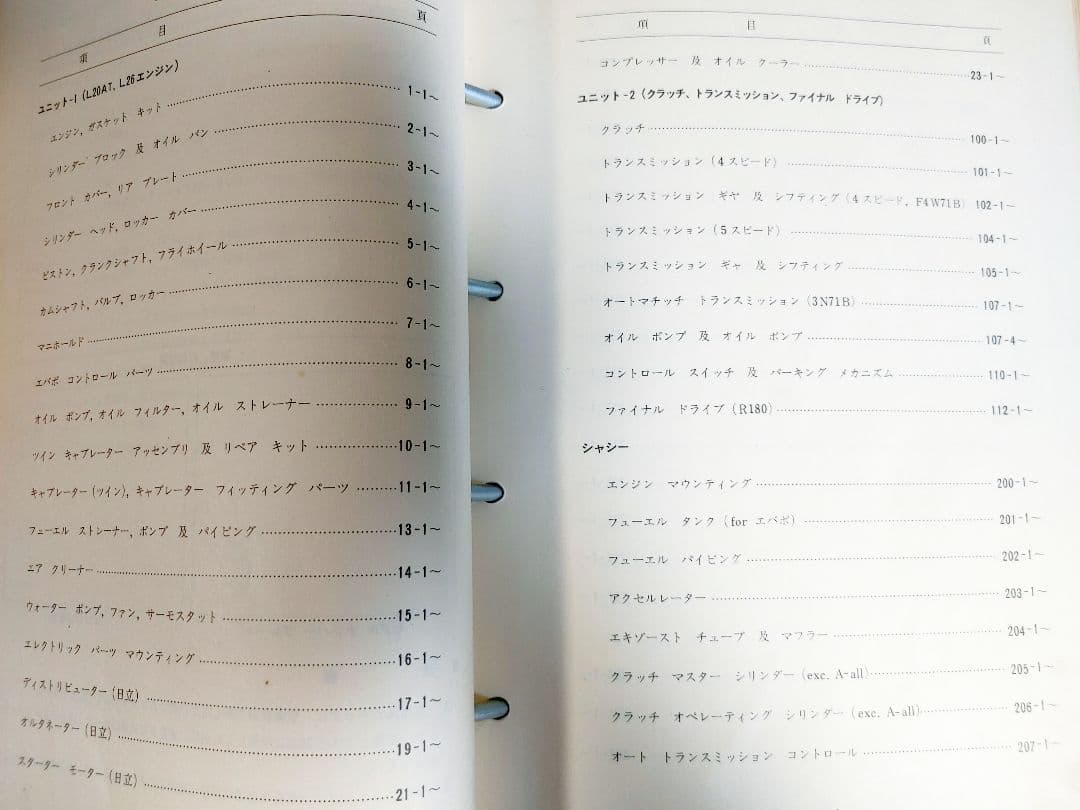 項 目 頁
ユニット-1 (L20AT, L26エンジン)
エンジン, ガスケット キット 1-1〜
シリンダー ブロック 及 オイル パン 2-1〜
フロント カバー, リア プレート 3-1〜
シリンダー ヘッド, ロッカー カバー 4-1〜
ピストン, クランクシャフト, フライホイール 5-1〜
カムシャフト, バルブ, ロッカー 6-1〜
マニホールド 7-1〜
エバポ コントロール パーツ 8-1〜
オイル ポンプ, オイル フィルター, オイル ストレーナー 9-1〜
ツイン キャブレーター アッセンブリ 及 リペア キット 10-1〜
キャブレーター (ツイン), キャブレーター フィッティング パーツ 11-1〜
フューエル ストレーナー, ポンプ 及 パイピング 13-1〜
エア クリーナー 14-1〜
ウォーター ポンプ, ファン, サーモスタット 15-1〜
エレクトリック パーツ マウンティング 16-1〜
ディストリビューター (日立) 17-1〜
オルタネーター (日立) 19-1〜
スターター モーター (日立) 21-1〜
項 目 頁
コンプレッサー 及 オイル クーラー 23-1〜
ユニット-2 (クラッチ、トランスミッション、ファイナル ドライブ)
クラッチ 100-1〜
トランスミッション (4スピード) 101-1〜
トランスミッション ギヤ 及 シフティング (4スピード, F4W71B) 102-1〜
トランスミッション (5スピード) 104-1〜
トランスミッション ギャ 及 シフティング 105-1〜
オートマチッチ トランスミッション (3N71B) 107-1〜
オイル ポンプ 及 オイル ポンプ 107-4〜
コントロール スイッチ 及 パーキング メカニズム 110-1〜
ファイナル ドライブ (R180) 112-1〜
シャシー
エンジン マウンティング 200-1〜
フューエル タンク (for エバポ) 201-1〜
フューエル パイピング 202-1〜
アクセルレーター 203-1〜
エキゾースト チューブ 及 マフラー 204-1〜
クラッチ マスター シリンダー (exc. A-all) 205-1〜
クラッチ オペレーティング シリンダー (exc. A-all) 206-1〜
オート トランスミッション コントロール 207-1〜